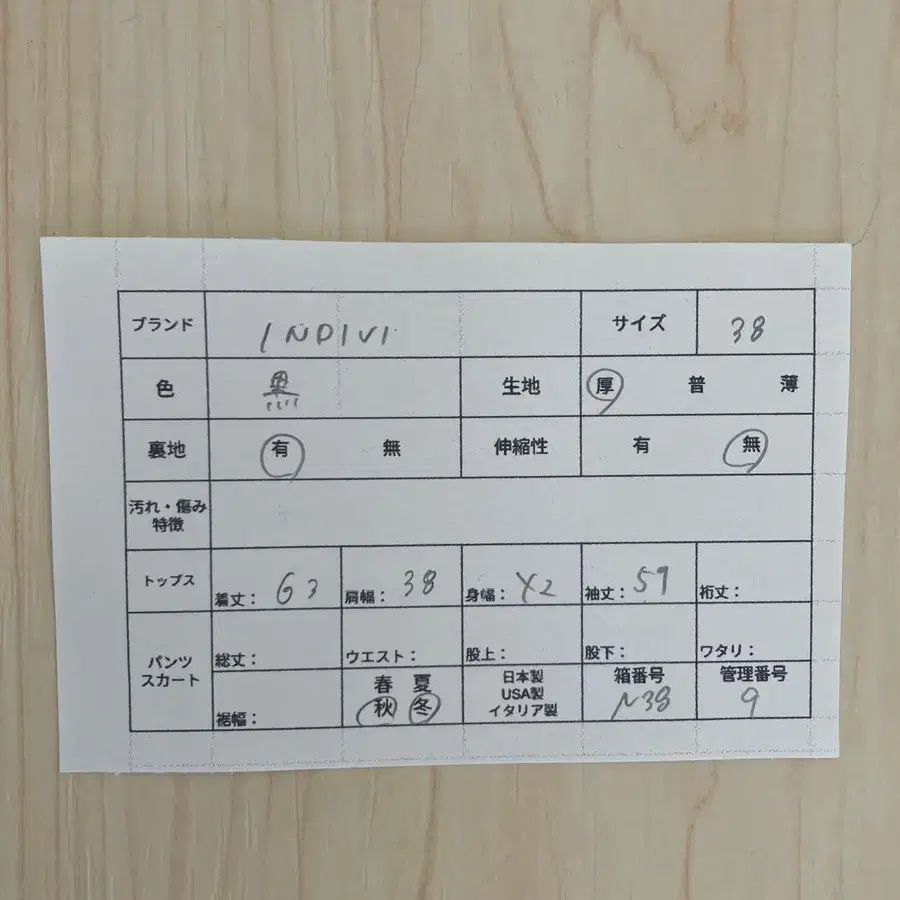 ブランド INDIVI サイズ 38
色 黒 生地 厚 普 薄
裏地 有 無 伸縮性 有 無
汚れ・傷み
特徴
トップス 着丈: 63 肩幅: 38 身幅: 42 袖丈: 59 裄丈:
パンツ
スカート
総丈: ウエスト: 股上: 股下: ワタリ:
裾幅:
春 夏
秋 冬
日本製
USA製
イタリア製
箱番号
N38
管理番号
9